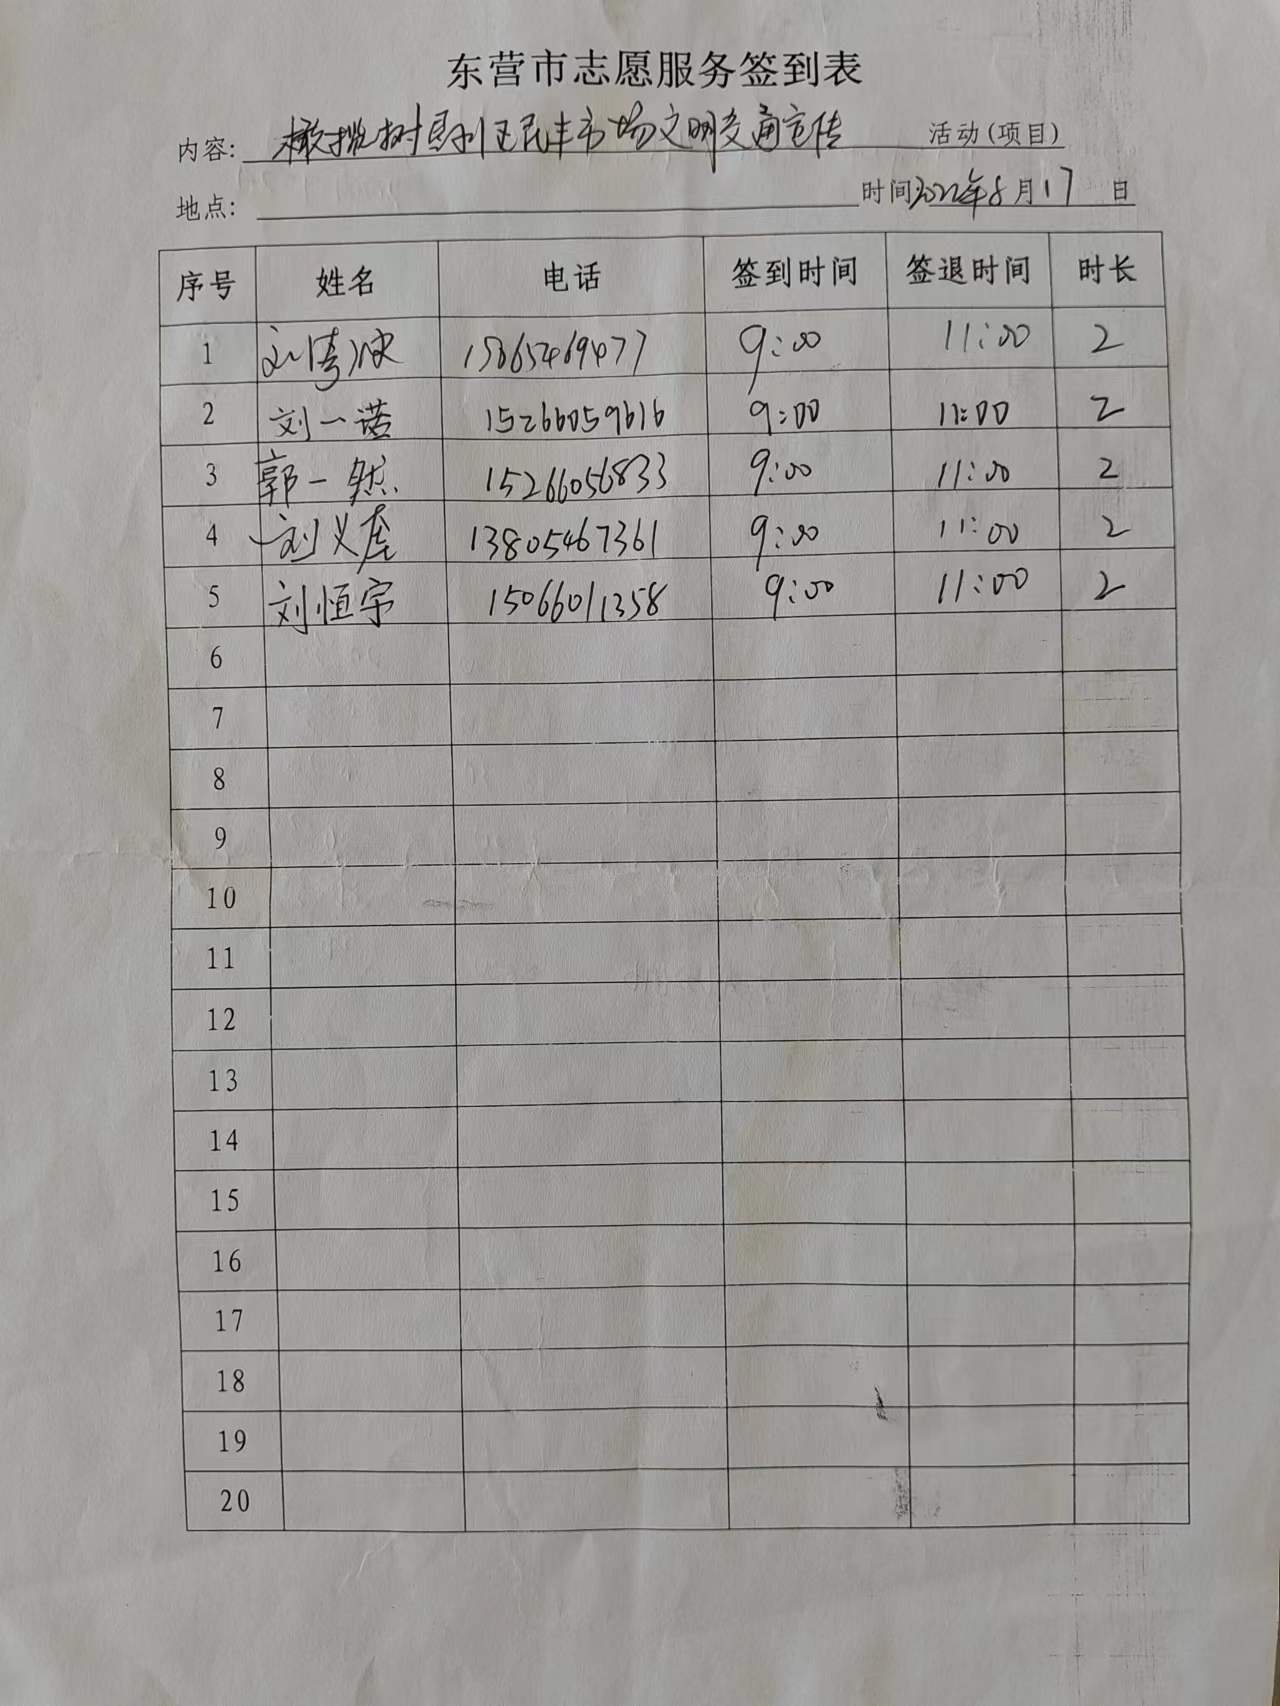 东营市志愿服务签到表
内容: 橄榄树垦利区民丰市场文明交通宣传 活动(项目)
地点: 时间2022年8月17日
序号 姓名 电话 签到时间 签退时间 时长
1 刘 15865469477 9:00 11:00 2
2 刘一诺 15266059616 9:00 11:00 2
3 郭一然 15266056833 9:00 11:00 2
4 刘义 13805467361 9:00 11:00 2
5 刘恒宇 15066011358 9:00 11:00 2
6
7
8
9
10
11
12
13
14
15
16
17
18
19
20